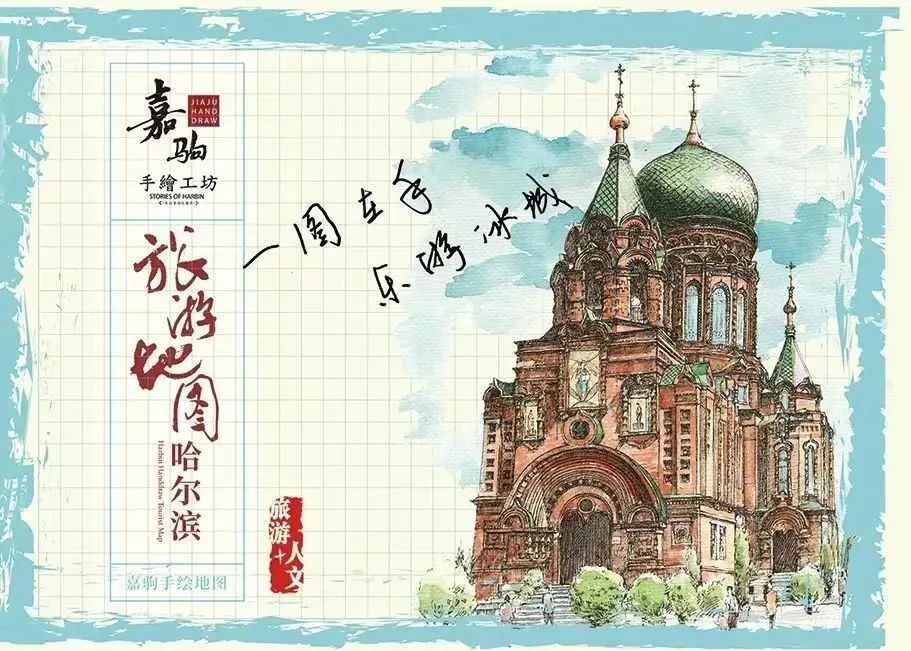 嘉驹
JIAJU
HAND
DRAW
手繪工坊
STORIES OF HARBIN
旅游地图
哈尔滨
Harbin Handdraw Tourist Map
嘉驹手绘地图
一图在手
乐游冰城
旅游+
人文